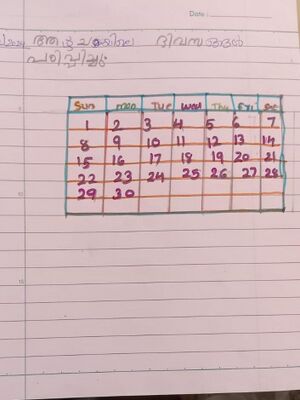 Date :
ആഴ്ചയിലെ ദിവസങ്ങൾ
പഠിപ്പിച്ചു
Sun mon Tue Wed Thu Fri Sat
1 2 3 4 5 6 7
8 9 10 11 12 13 14
15 16 17 18 19 20 21
22 23 24 25 26 27 28
29 30